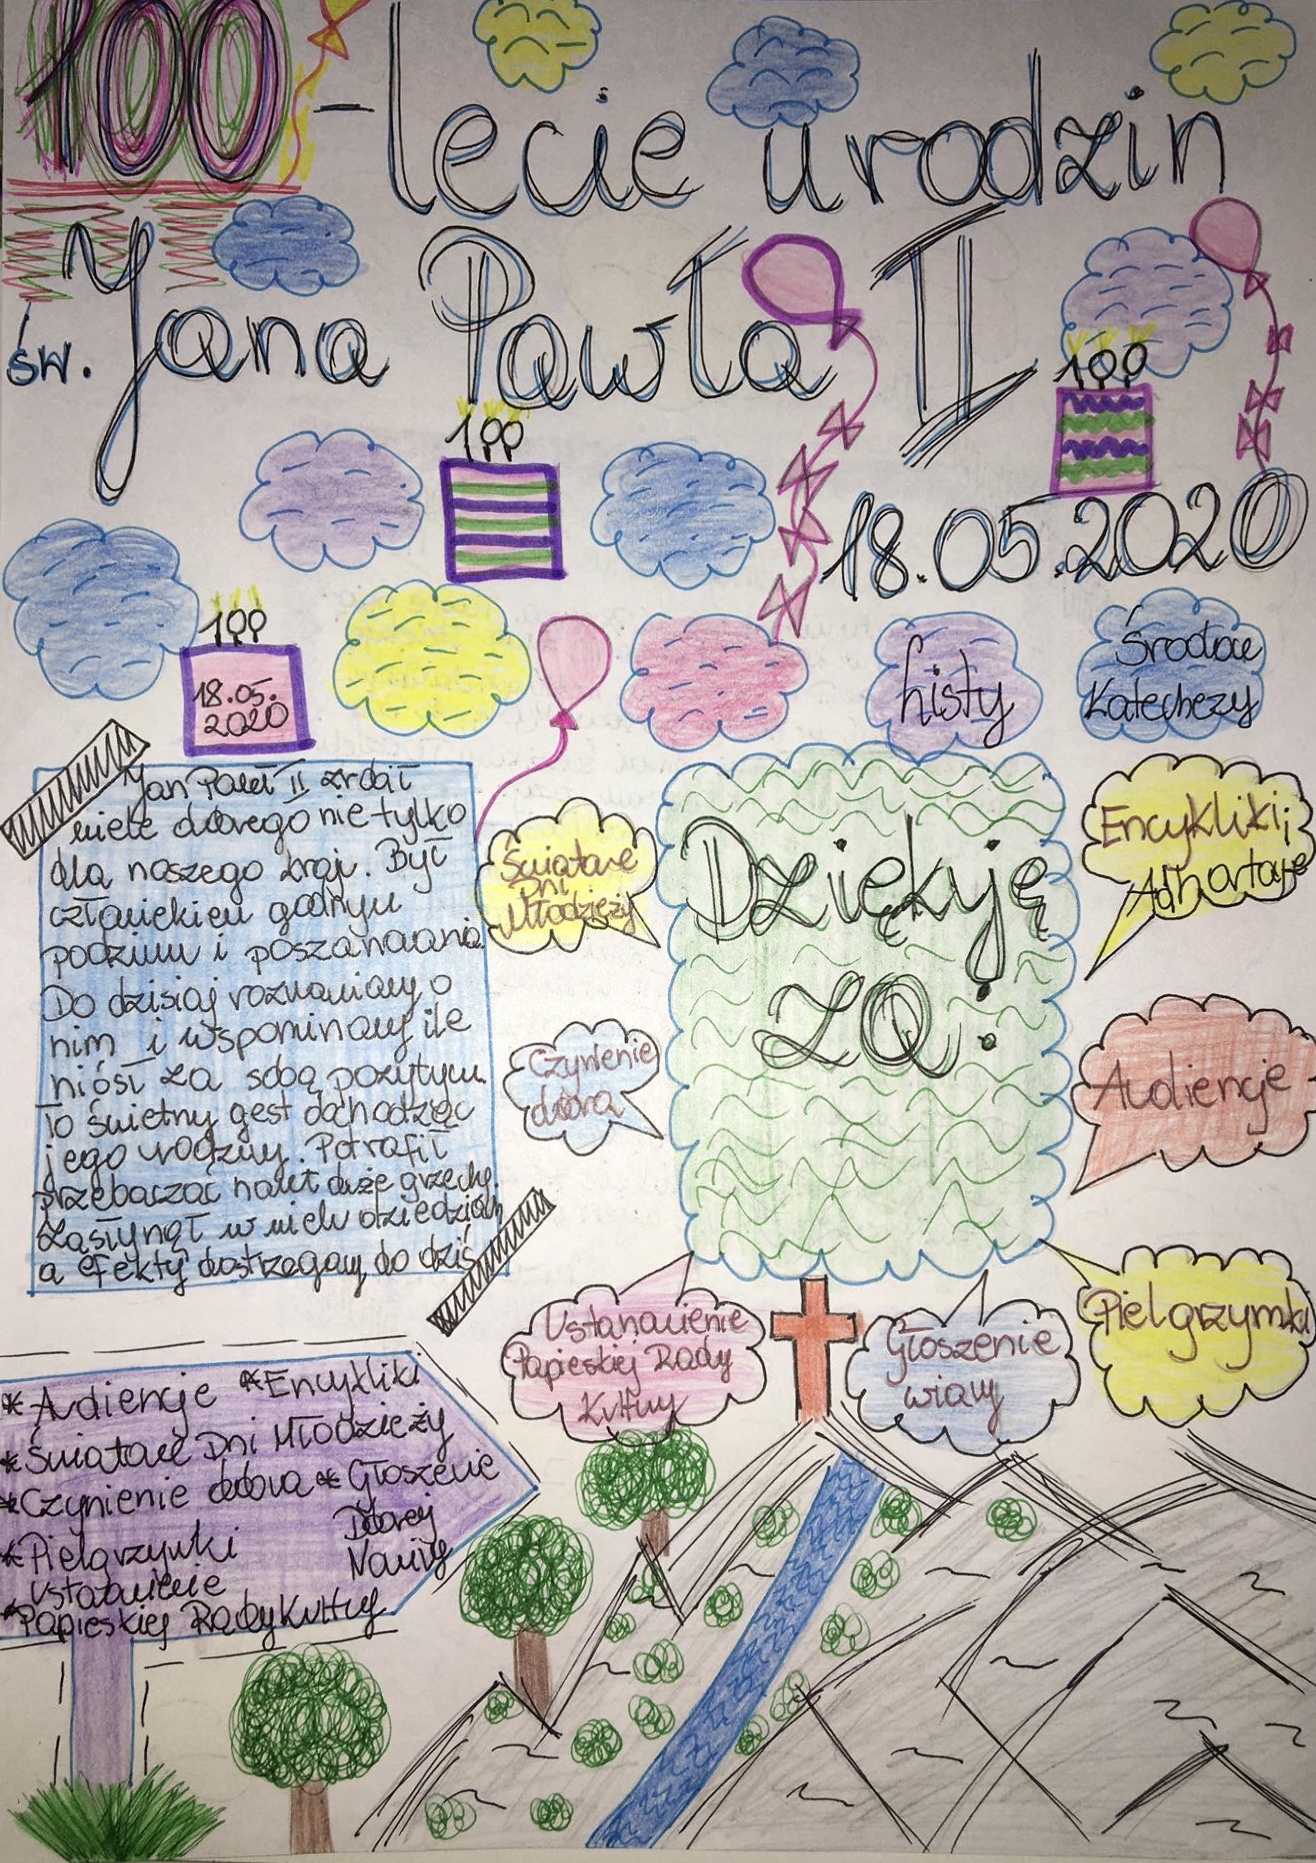 100-lecie urodzin
św. Jana Pawła II
100
100
18.05.2020
100
18.05.
2020
Listy
Środowe
Katechezy
Jan Paweł II zrobił
wiele dobrego nie tylko
dla naszego kraju. Był
człowiekiem godnym
podziwu i poszanowania.
Do dzisiaj rozmawiamy o
nim i wspominamy ile
niósł za sobą pozytywu.
To świetny gest obchodząc
jego urodziny. Potrafił
przebaczać nawet duże grzechy.
Zasłynął w wielu dziedzinach
a efekty dostrzegamy do dziś.
Światowe
Dni
Młodzieży
Dziękuję
za:
Encykliki;
Adhortacje
Czynienie
dobra
Audiencje
Ustanowienie
Papieskiej Rady
Kultury
Głoszenie
wiary
Pielgrzymki
* Audiencje * Encykliki
* Światowe Dni Młodzieży
* Czynienie dobra * Głoszenie
Dobrej
* Pielgrzymki Nowiny
Ustanowienie
* Papieskiej Rady Kultury